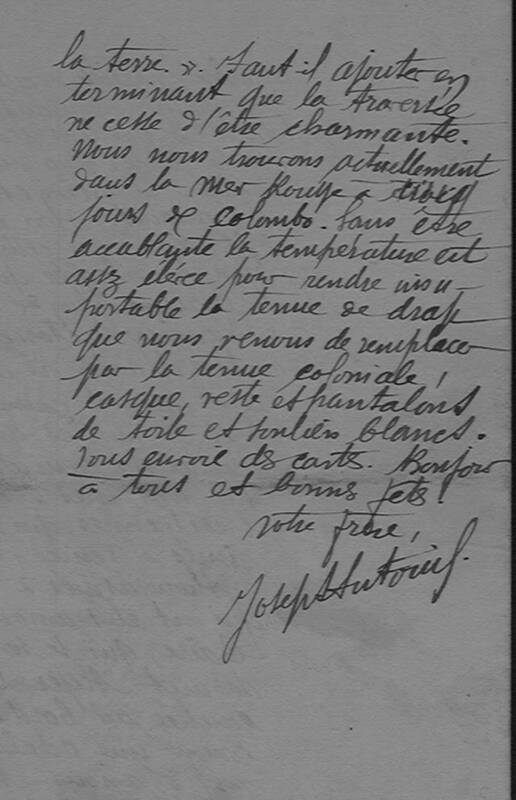 la terre. ». Faut-il ajouter en
terminant que la traversée
ne cesse d'être charmante.
Nous nous trouvons actuellement
dans la mer Rouge à
jours de Colombo. Sans être
accablante la température est
assz élevée pour rendre insu-
portable la tenue de drap
que nous venons de remplacer
par la tenue coloniale,
casque, veste et pantalons
de toile et souliers blancs.
vous envoie des carts. Bonjour
à tous et bonnes fêts!
Votre frère,
Joseph